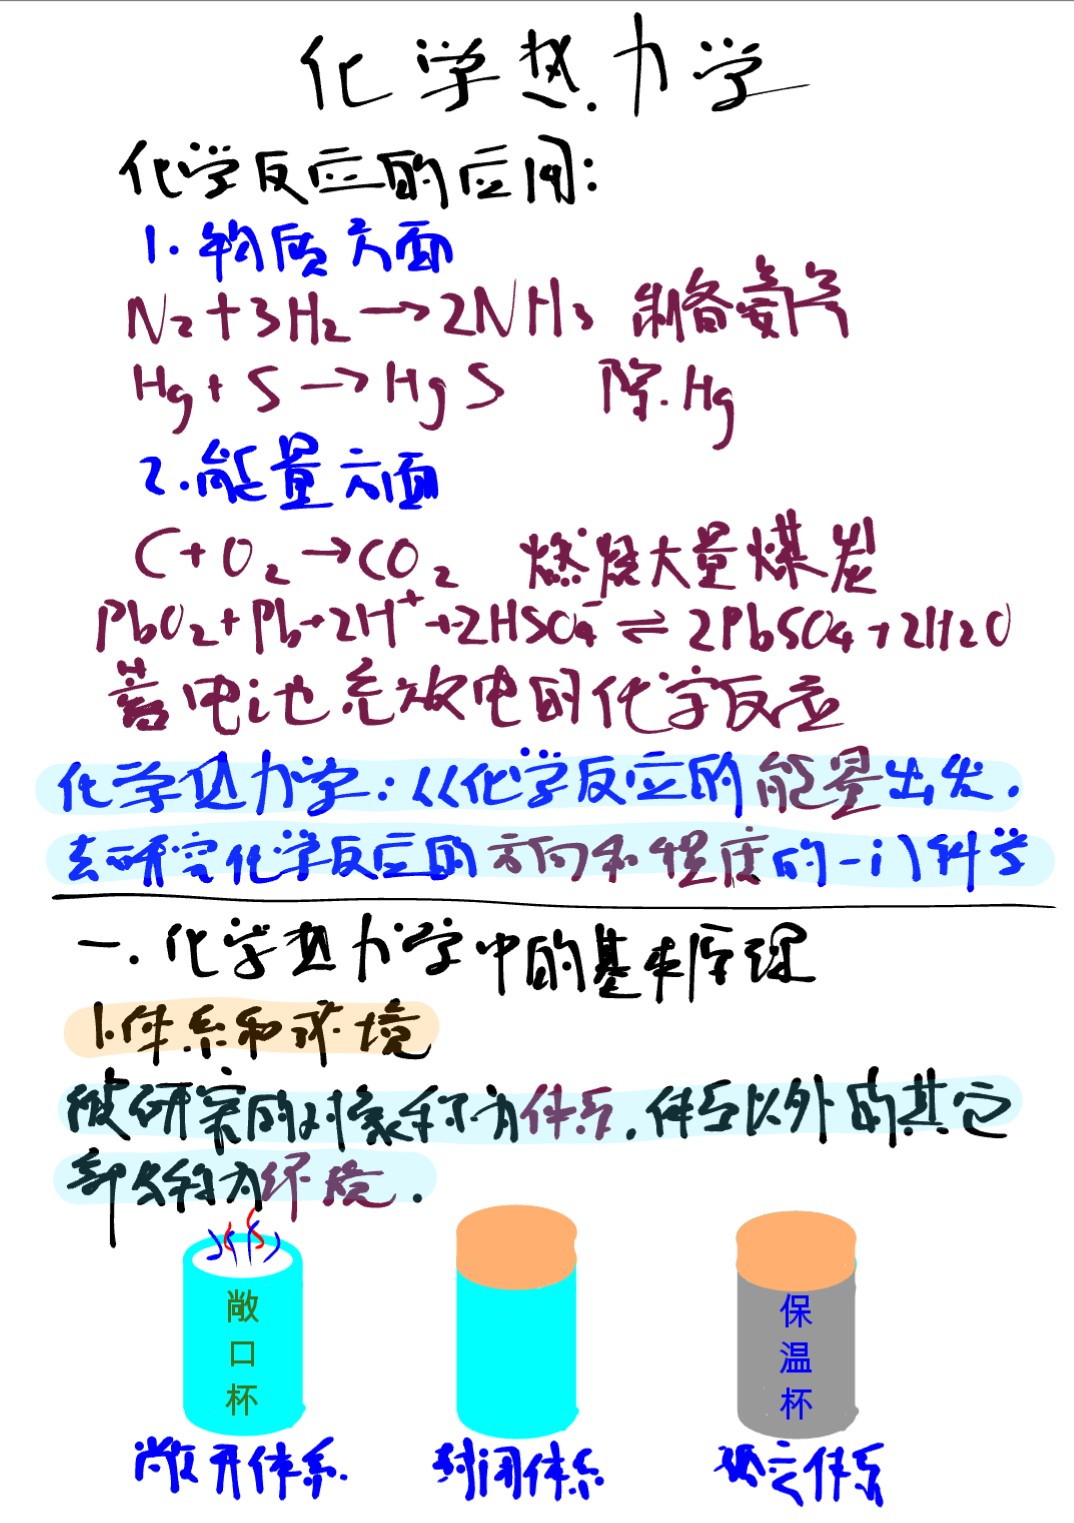 化学热力学
化学反应的应用:
1.物质方面
N₂+3H₂→2NH₃ 制备氨气
Hg+S→HgS 除.Hg
2.能量方面
C+O₂→CO₂ 燃烧大量煤炭
PbO₂+Pb+2H⁺+2HSO₄⁻⇌2PbSO₄+2H₂O
蓄电池充放电的化学反应
化学热力学:从化学反应的能量出发.
去研究化学反应的方向和程度的一门科学
一.化学热力学中的基本原理
1.体系和环境
被研究的对象称为体系.体系以外的其它
部分称为环境.
敞口杯
保温杯
敞开体系.
封闭体系
孤立体系